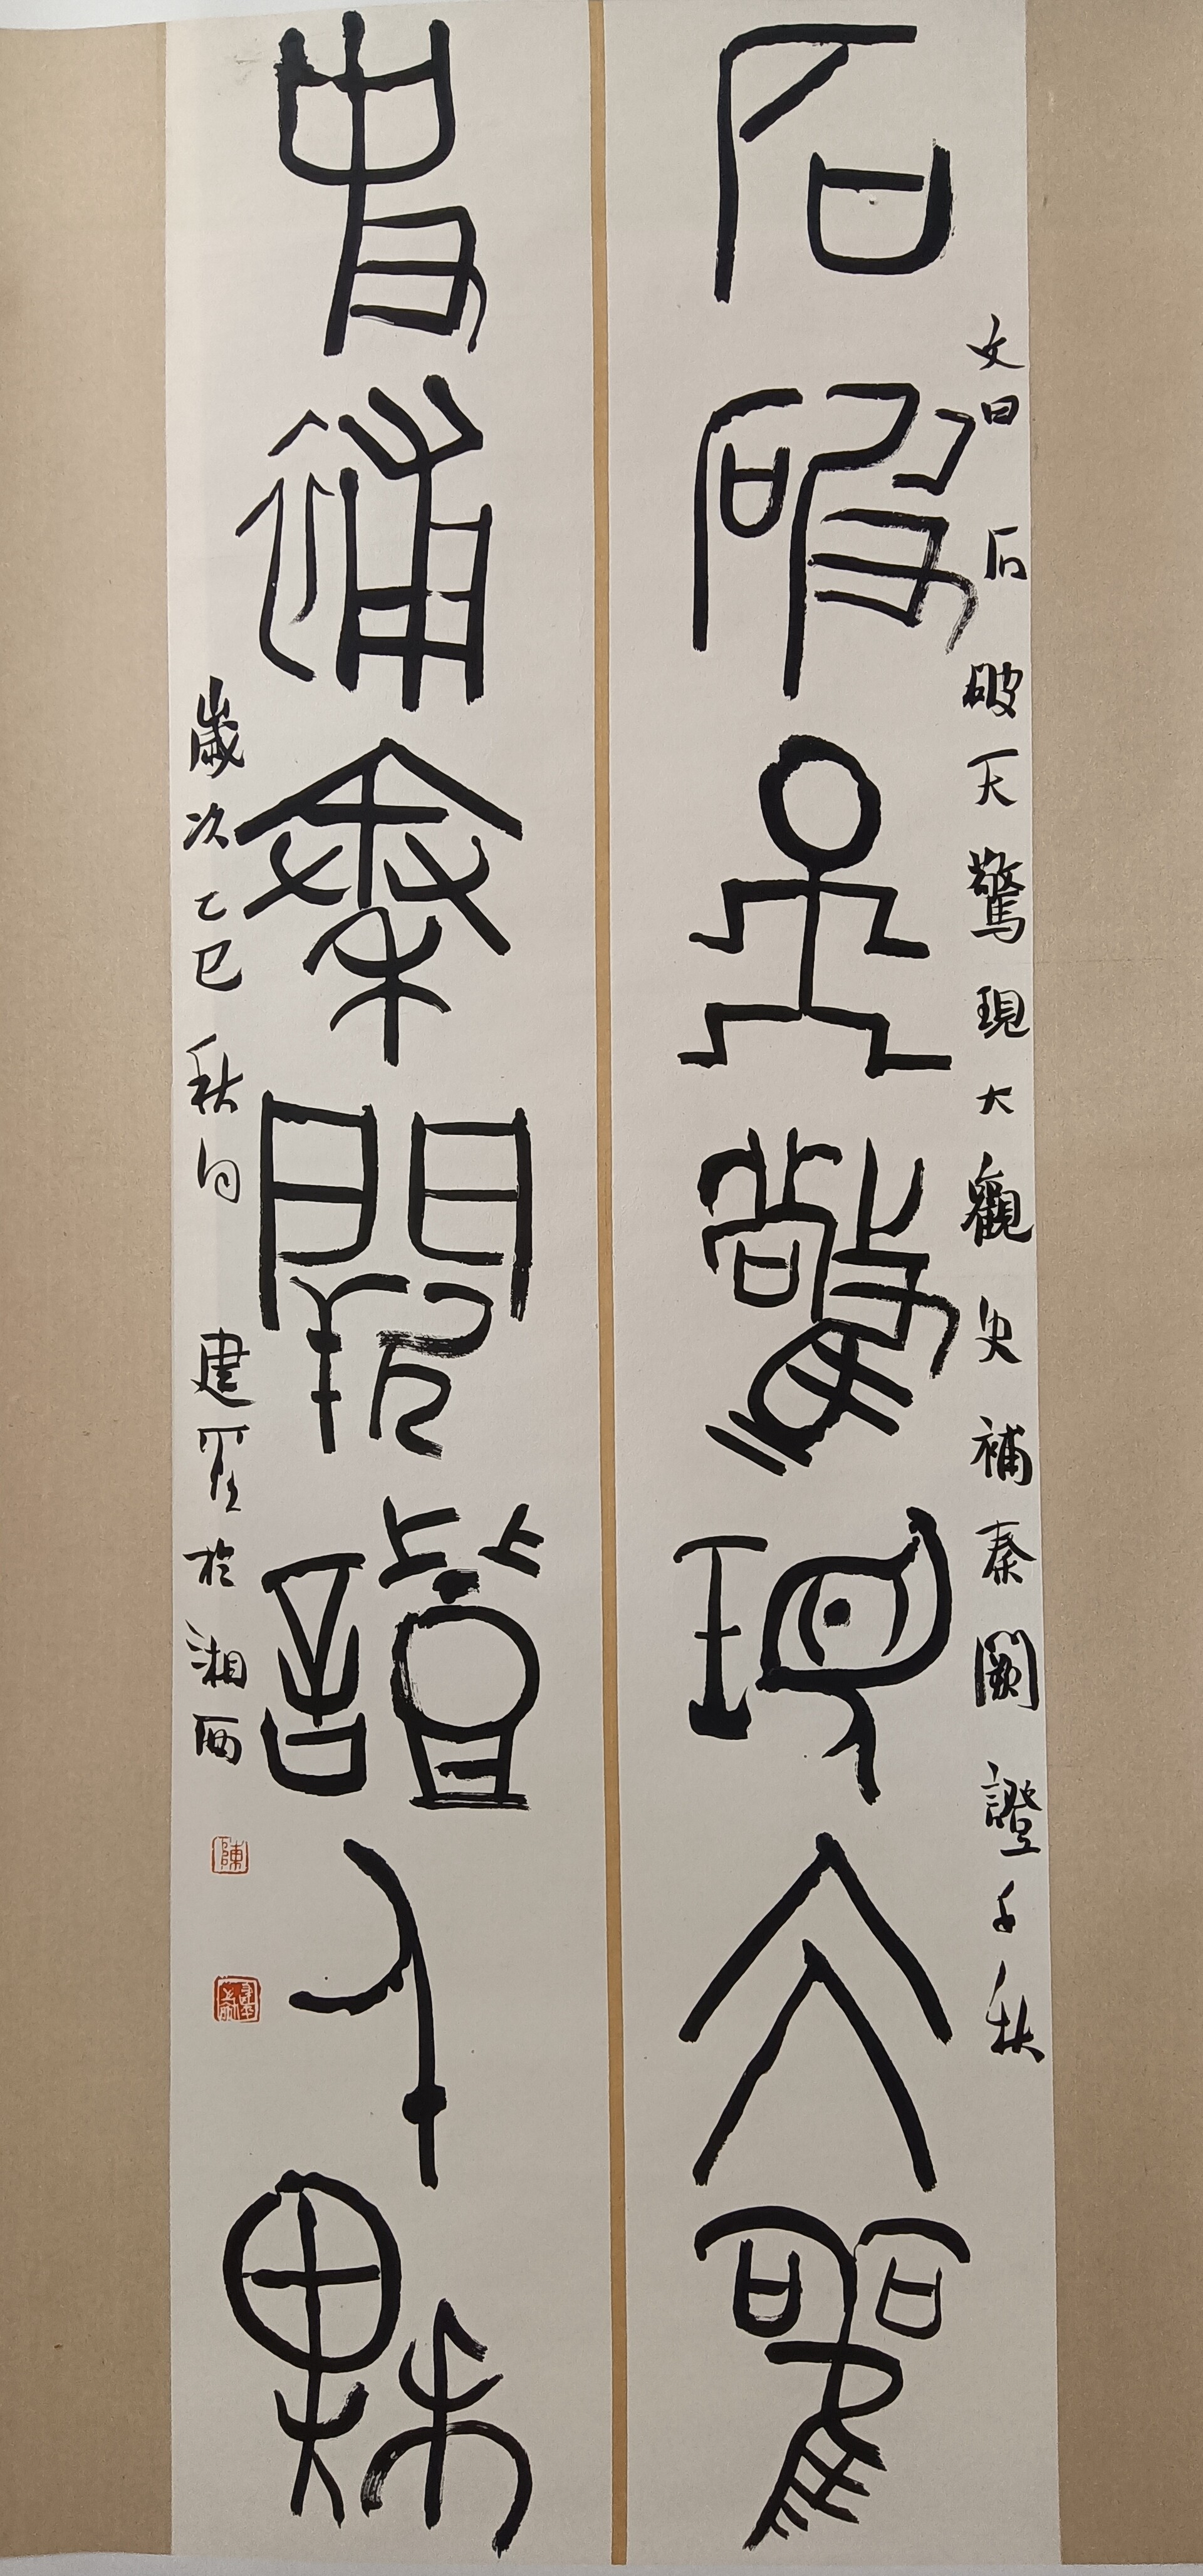 石破天驚現大觀
文曰石破天驚現大觀史補秦闕證千秋
史補秦闕證千秋
歲次乙巳秋月建於湘西
陳